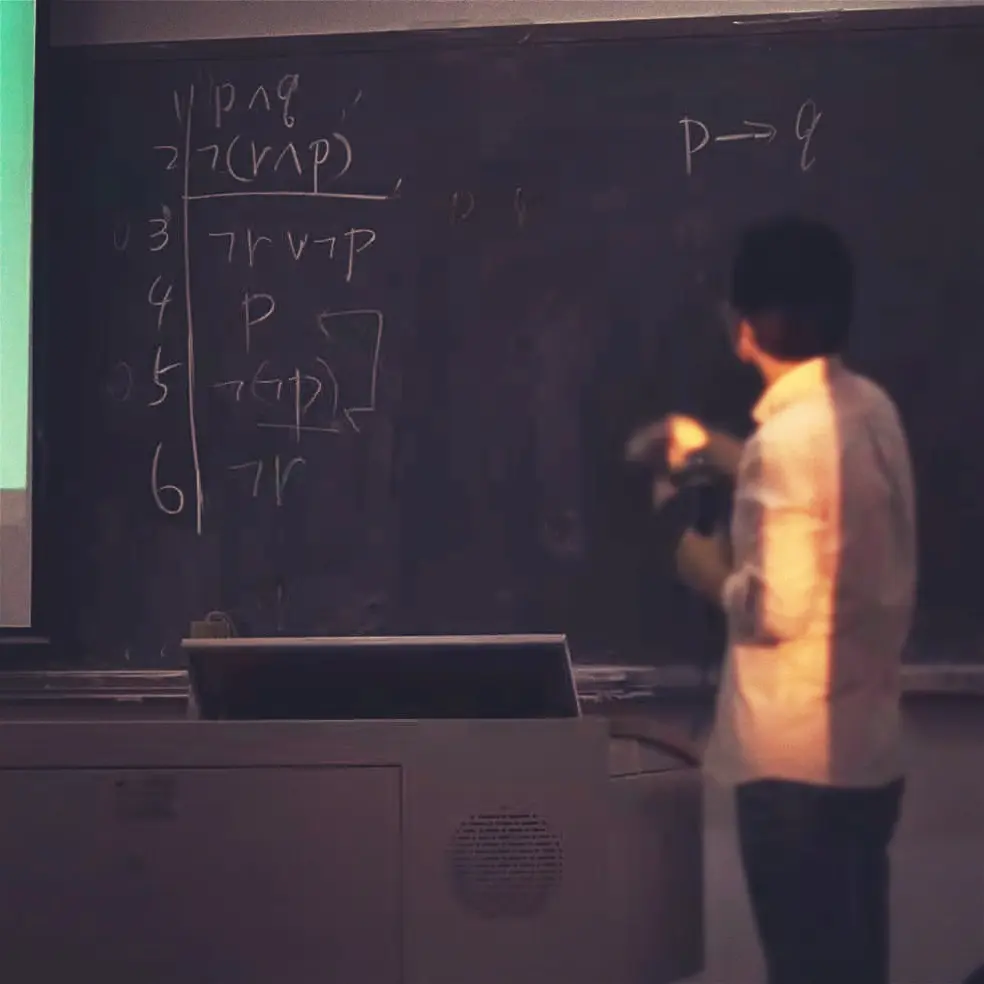 1 p ∧ q
2 ¬(r ∧ p)
3 ¬r ∨ ¬p
4 p
5 ¬(¬p)
6 ¬r
p → q